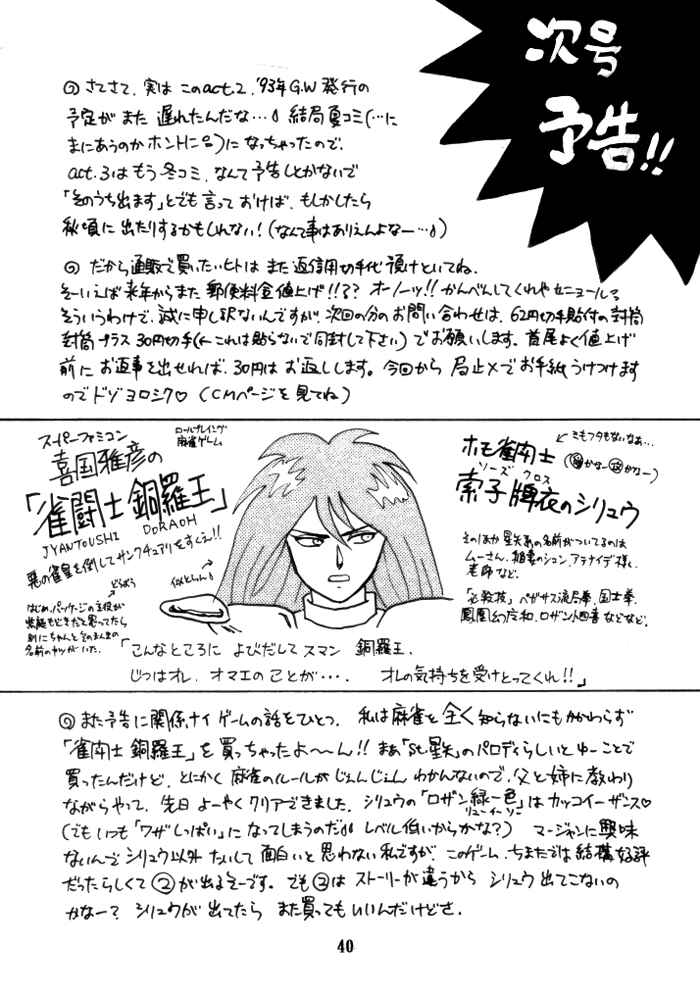 次号
予告!!
◎ さてさて、実は このact.2、'93年G.W発行の
予定が また 遅れたんだな…♪ 結局夏コミ(…に
まにあうのか ホントに)に なっちゃったので、
act.3はもう冬コミ、なんて予告しとかないで
「そのうち出ます」とでも言って おけば、もしかしたら
秋頃に 出たりするかもしれない!(なんて事はありえんよなー…♪)
◎ だから通販で買いたいヒトは また 返信用切手代 預けといてね。
そーいえば 来年からまた 郵便料金値上げ!!?? オーノーッ!! かんべんしてくれや セニョール
そういうわけで、誠に申し訳ないんですが、次回の分のお問い合わせは、62円切手貼付の封筒
封筒プラス 30円切手(←これは貼らないで同封して下さい)でお願いします。首尾よく値上げ
前に お返事を出せれば、30円は お返しします。今回から 局止メでお手紙うけつけます
のでドゾヨロシク♡(CMページを見てね)
スーパーファミコン
ロールプレイング
麻雀ゲーム
喜国雅彦の
「雀闘士 銅羅王」
JYANTOUSHI DORAOH
悪の雀皇を倒してサンクチュアリをすくえ!!
どらおう
似とらん
はじめ、パッケージの主役が
紫龍もどきだと思ってたら
別にちゃんとそのまんまの
名前のヤツがいた。
ミもフタもないなぁ…
ホモ雀闘士
ソーズ クロス
索子牌衣のシリュウ
そのほか 星矢系の名前がついてるのは
ムーさん、稲妻のシュン、アテナイデ様、
老師など。
「必殺技」ペガサス流局拳、国士拳、
鳳凰幻应和、ロザント四喜などなど。
「こんなところに よびだして スマン 銅羅王、
じつはオレ、オマエの ことが…、 オレの気持ちを受けとってくれ!!」
◎ また予告に関係ナイ ゲームの話をひとつ、私は麻雀を 全く知らないにもかかわらず
「雀闘士 銅羅王」を買っちゃったよ〜〜ん!! まあ「St.星矢」のパロディらしいと ゆーことで
買ったんだけど、とにかく 麻雀のルールが じぇんじぇん わかんないので、父と姉に教わり
ながらやって、先日 よーやく クリアできました。シリュウの「ロザン緑一色」はカッコイーザンス♡
リューイーソー
(でも いつも「ワザ しっぱい」に なってしまうのだ♪♪ レベル低いからかな?) マージャンに興味
ないんで シリュウ以外 たいして 面白いと 思わない 私ですが、このゲーム、ちまたでは結構好評
だったらしくて ②が出るそーです。でも ②は ストーリーが違うから シリュウ 出てこないの
かなー? シリュウが出てたら また買っても いいんだけどさ。
40